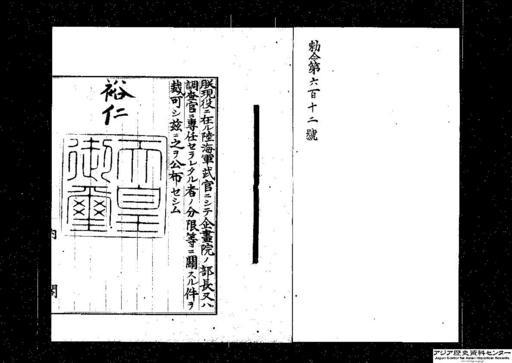 勅令第六百十二號
朕現役ニ在ル陸海軍武官ニシテ企畫院ノ部長又ハ
調査官ニ專任セラレタル者ノ分限等ニ關スル件ヲ
裁可シ茲ニ之ヲ公布セシム
裕仁
天皇御璽
内閣
アジア歴史資料センター
Japan Center for Asian Historical Records